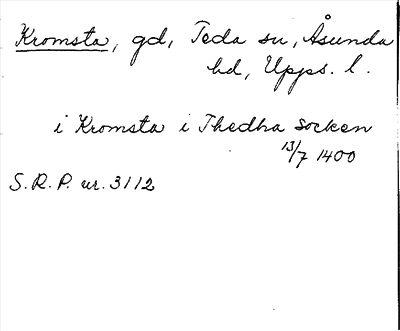 Kromsta, gd, Teda sn, Åsunda
hd, Upps. l.
i Kromsta i Thedha socken
13/7 1400
S.R.P. nr. 3112